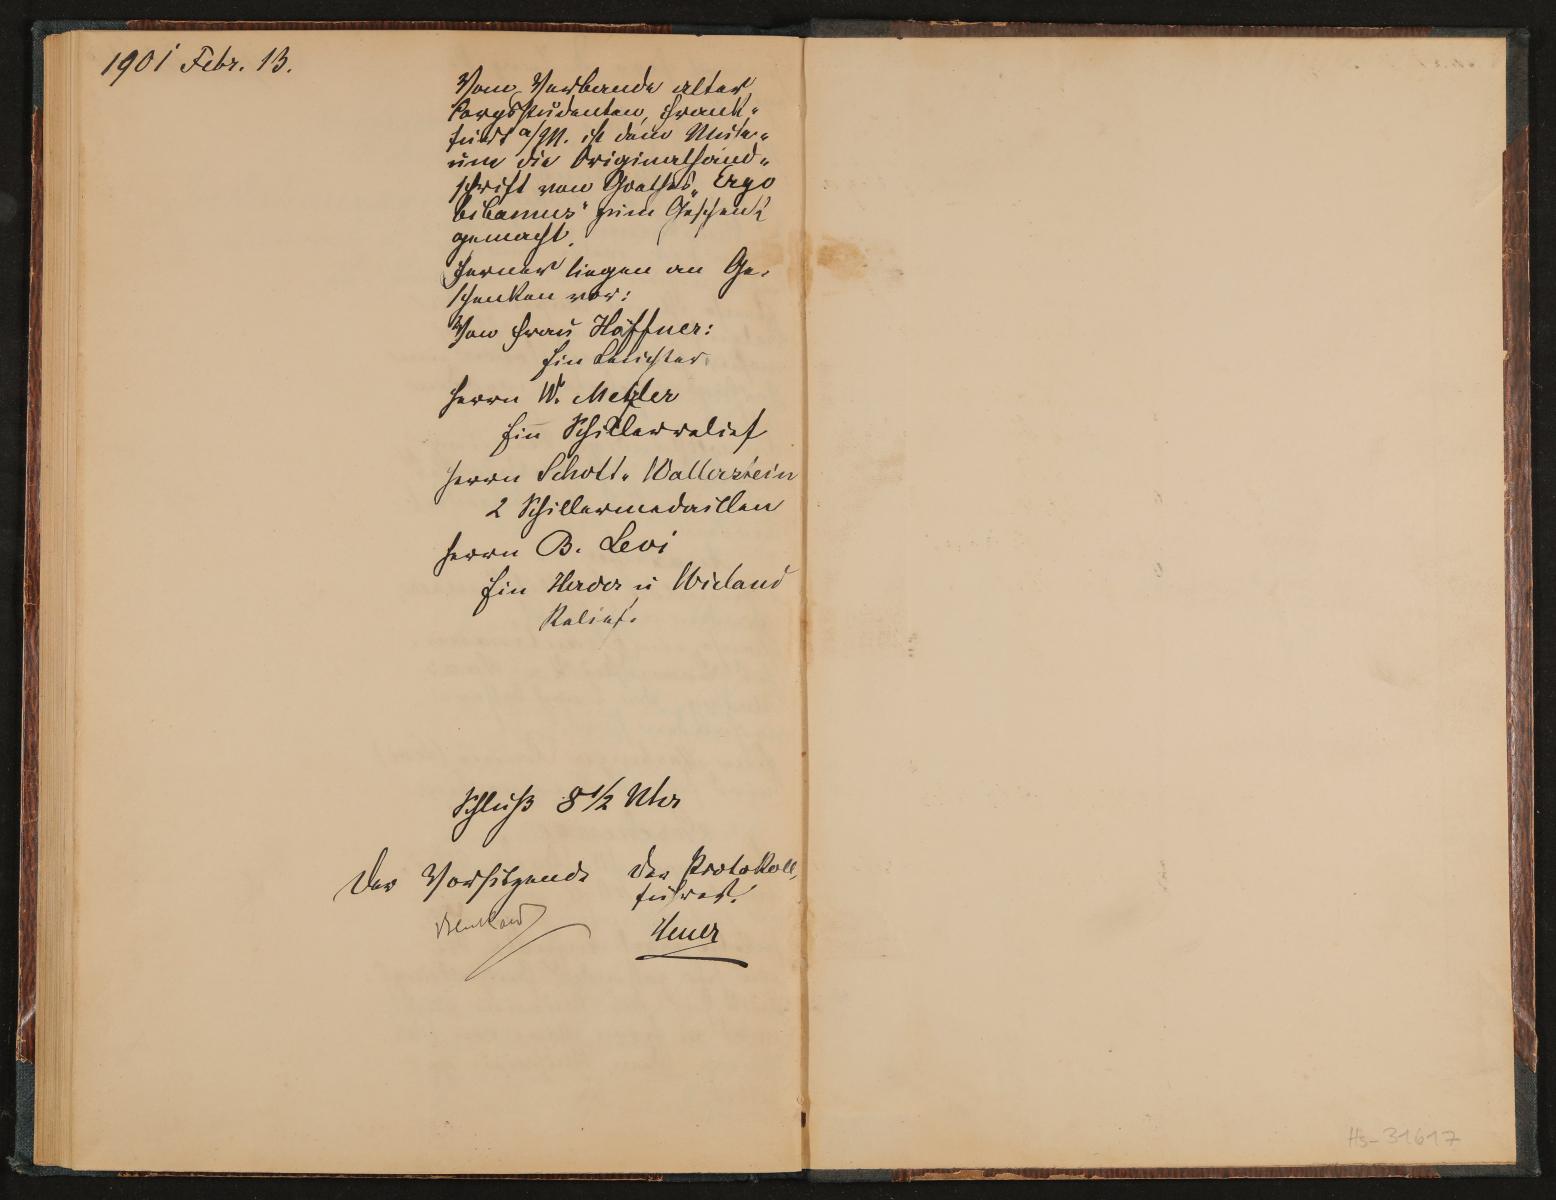 1901 Febr. 13.
Vom Verbande alter
Corpsstudenten, Frank-
furt a/M. ist dem Muse-
um die Originalhand-
schrift von Goethes „Ergo
bibamus" zum Geschenk
gemacht.
Ferner liegen an Ge-
schenken vor:
Von Frau Häffner:
Ein Leuchter.
Herrn W. Metzler
Ein Schillerrelief
Herrn Schott-Wallerstein
2 Schillermedaillen
Herrn B. Levi
Ein Herder u Wieland
Relief.
Schluß 8 1/2 Uhr
Der Vorsitzende Der Protokoll
führer.
Heuer
Hs-31617